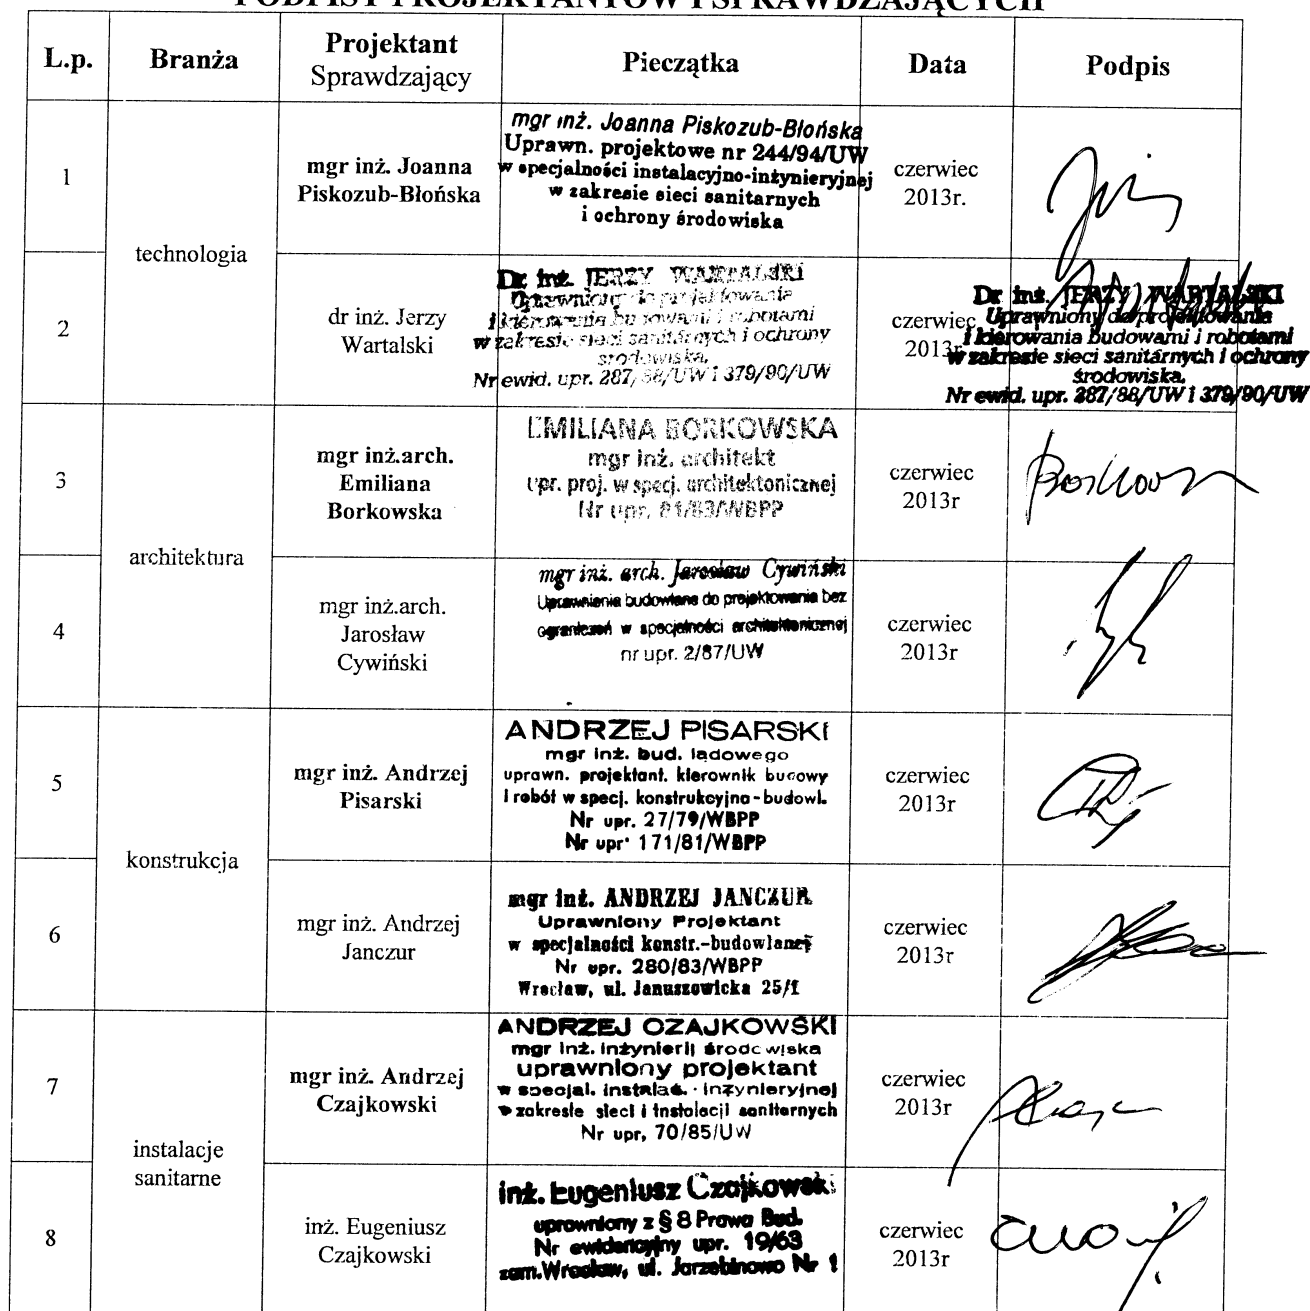 PODPISY PROJEKTANTÓW I SPRAWDZAJĄCYCH
L.p.
Branża
Projektant
Sprawdzający
Pieczątka
Data
Podpis
1
technologia
mgr inż. Joanna
Piskozub-Błońska
mgr inż. Joanna Piskozub-Błońska
Uprawn. projektowe nr 244/94/UW
w specjalności instalacyjno-inżynieryjnej
w zakresie sieci sanitarnych
i ochrony środowiska
czerwiec
2013r.
2
dr inż. Jerzy
Wartalski
Dr inż. JERZY WARTALSKI
Uprawniony do projektowania
i kierowania budowami i robotami
w zakresie sieci sanitarnych i ochrony
środowiska,
Nr ewid. upr. 287/88/UW i 379/90/UW
czerwiec
2013r
Dr inż. JERZY WARTALSKI
Uprawniony do projektowania
i kierowania budowami i robotami
w zakresie sieci sanitarnych i ochrony
środowiska,
Nr ewid. upr. 287/88/UW i 379/90/UW
3
architektura
mgr inż.arch.
Emiliana
Borkowska
EMILIANA BORKOWSKA
mgr inż. architekt
upr. proj. w specj. architektonicznej
Nr upr. 81/83/WBPP
czerwiec
2013r
4
mgr inż.arch.
Jarosław
Cywiński
mgr inż. arch. Jarosław Cywiński
Uprawnienia budowlane do projektowania bez
ograniczeń w specjalności architektonicznej
nr upr. 2/87/UW
czerwiec
2013r
5
konstrukcja
mgr inż. Andrzej
Pisarski
ANDRZEJ PISARSKI
mgr inż. bud. lądowego
uprawn. projektant. kierownik budowy
i robót w specj. konstrukcyjno-budowl.
Nr upr. 27/79/WBPP
Nr upr. 171/81/WBPP
czerwiec
2013r
6
mgr inż. Andrzej
Janczur
mgr inż. ANDRZEJ JANCZUR
Uprawniony Projektant
w specjalności konstr.-budowlanej
Nr upr. 280/83/WBPP
Wrocław, ul. Januszowicka 25/1
czerwiec
2013r
7
instalacje
sanitarne
mgr inż. Andrzej
Czajkowski
ANDRZEJ CZAJKOWSKI
mgr inż. inżynierii środowiska
uprawniony projektant
w specjal. instalac. - inżynieryjnej
w zakresie sieci i instalacji sanitarnych
Nr upr, 70/85/UW
czerwiec
2013r
8
inż. Eugeniusz
Czajkowski
inż. Eugeniusz Czajkowski
uprawniony z § 8 Prawa Bud.
Nr ewidencyjny upr. 19/63
zam.Wrocław, ul. Jarzębinowa Nr 1
czerwiec
2013r